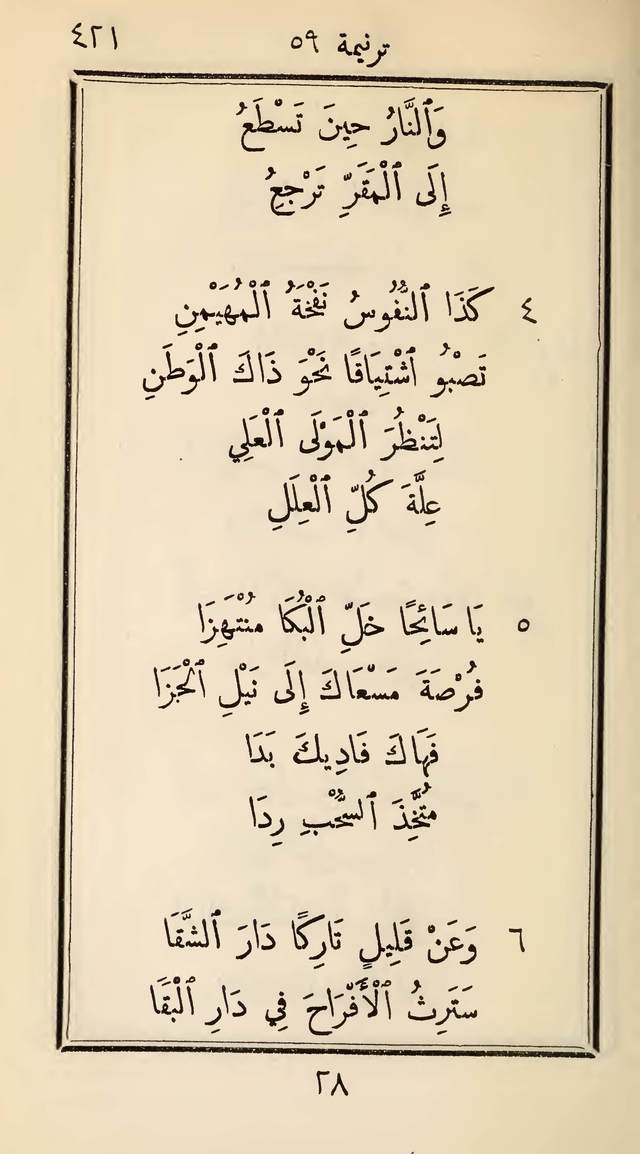 ترنيمة ٥٩ ٤٢١
وَٱلنَّارُ حِينَ تَسْطَعُ
إِلَى ٱلْمَقَرِّ تَرْجِعُ
٤ كَذَا ٱلنُّفُوسُ نَفْخَةُ ٱلْمُهَيْمِنِ
تَصْبُو ٱشْتِيَاقًا نَحْوَ ذَاكَ ٱلْوَطَنِ
لِتَنْظُرَ ٱلْمَوْلَى ٱلْعَلِي
عِلَّةَ كُلِّ ٱلْعِلَلِ
٥ يَا سَائِحًا خَلِّ ٱلْبُكَا مُنْتَهِزَا
فُرْصَةَ مَسْعَاكَ إِلَى نَيْلِ ٱلْجَزَا
فَهَاكَ فَادِيكَ بَدَا
مُتَّخِذَ ٱلسُّحْبِ رِدَا
٦ وَعَنْ قَلِيلٍ تَارِكًا دَارَ ٱلشَّقَا
سَتَرِثُ ٱلْأَفْرَاحَ فِي دَارِ ٱلْبَقَا
٢٨